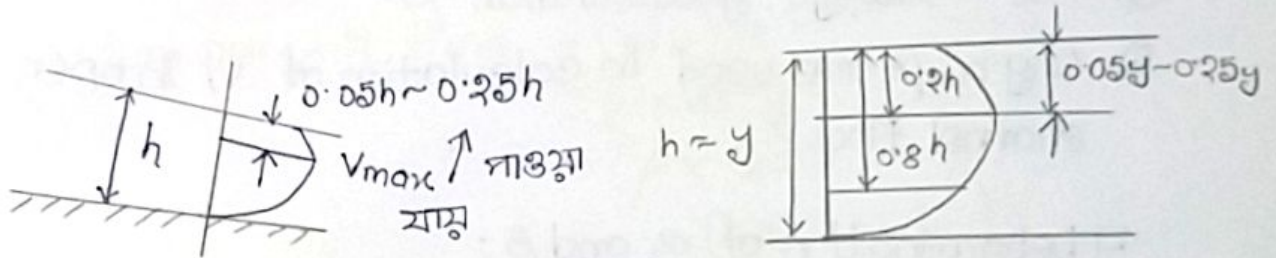 0.05h~0.25h
h
Vmax পাওয়া
যায়
h = y
0.2h
0.8h
0.05y-0.25y